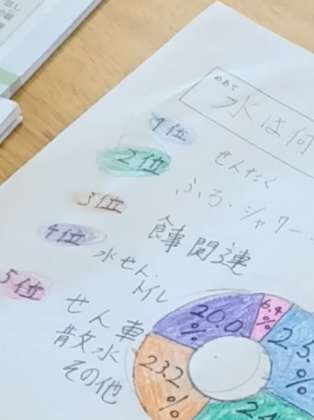 めあて
水は何
1位 せんたく
2位 ふろ・シャワー
3位 食事関連
4位 水せん・トイレ
5位 せん車
散水
その他
6.4%
20.0%
25.
%
23.2%